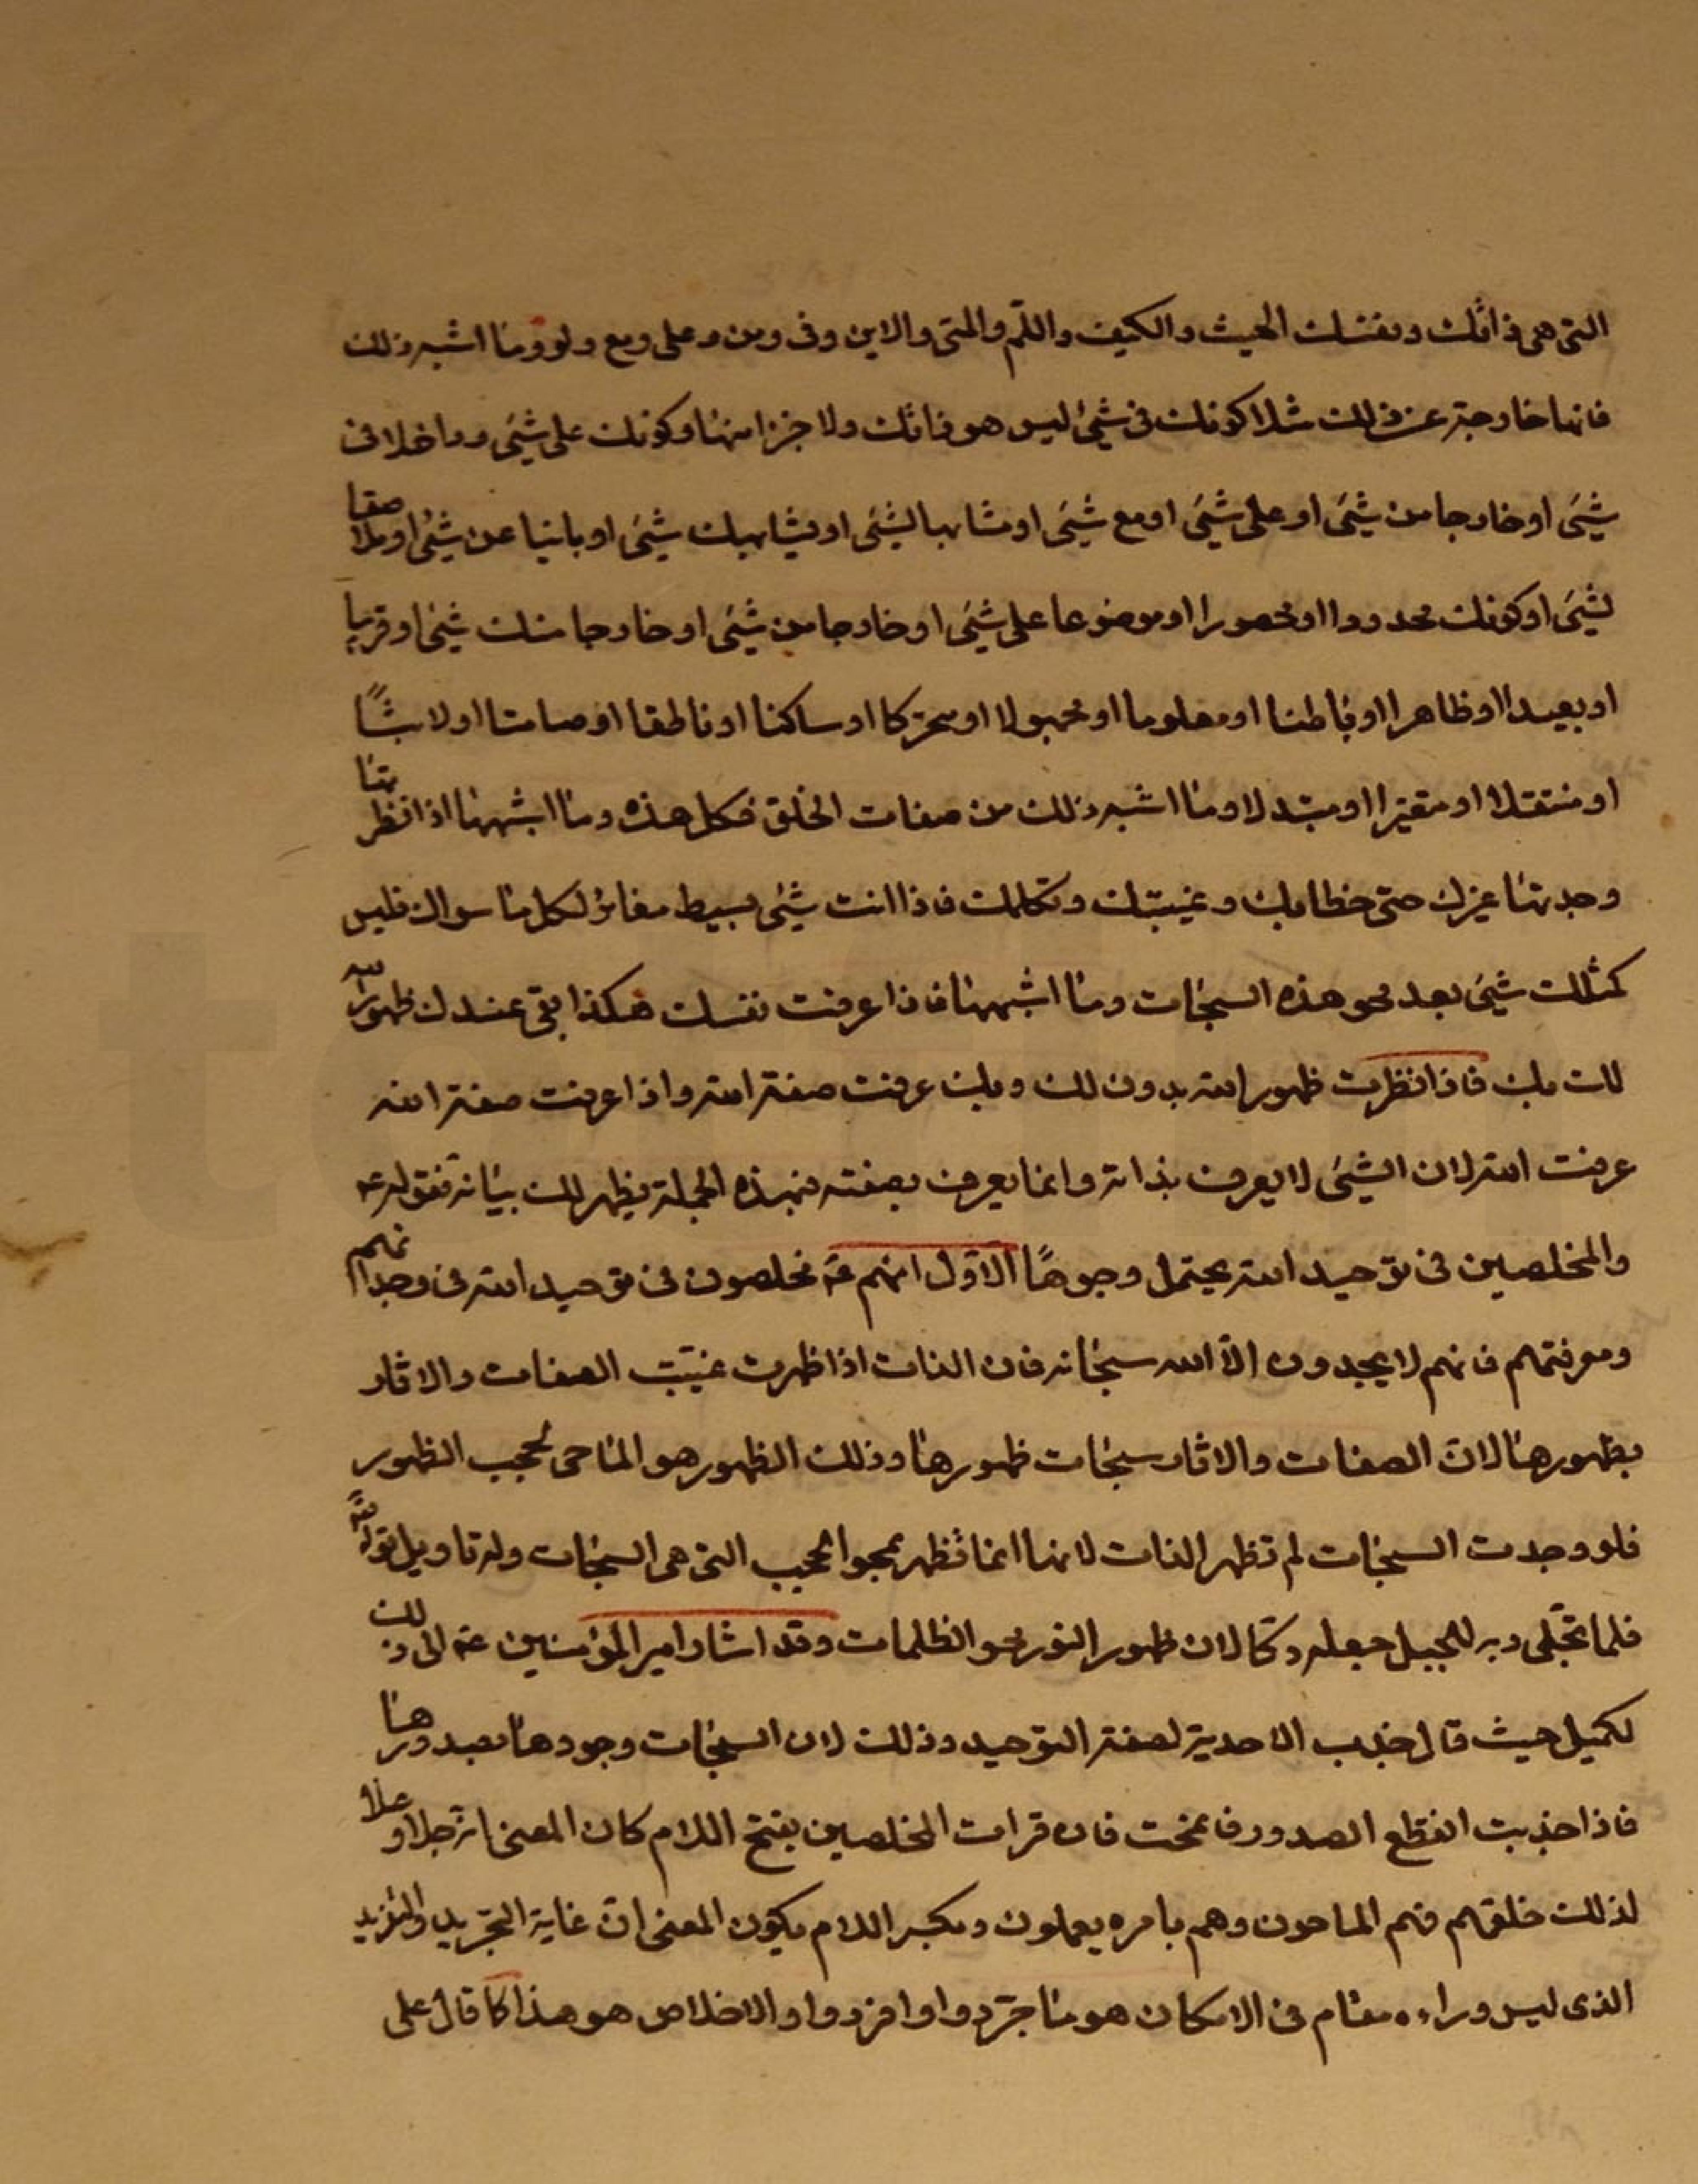 التى هى ذاتك ونفسك الحيث والكيف واللم والمتى والاين وفى ومن وعلى ومع ولو وما اشبه ذلك
فانها خارجة عن ذلك مثلا كونك فى شيئ ليس هو ذاتك ولا جزا منها وكونك على شيئ وداخلا فى
شيئ او خارجا من شيئ او على شيئ او مع شيئ او مشابها لشيئ او يشابهك شيئ او باينا عن شيئ او ملاصقا
لشيئ او كونك محدودا او محصورا او موضوعا على شيئ او خارجا من شيئ او خارجا منك شيئ او قريبا
او بعيدا او ظاهرا او باطنا او معلوما او مجهولا او متحركا او ساكنا او ناطقا او صامتا او لابثا
او منتقلا او متغيرا او متبدلا وما اشبه ذلك من صفات الخلق فكل هذه وما اشبهها اذا نظرتها
وجدتها غيرك حتى خطابك وغيبتك وتكلمك فاذا انت شيئ بسيط مغاير لكل ما سواك فليس
كمثلك شيئ بعد محو هذه السبحات وما اشبهها فاذا عرفت نفسك هكذا بقى عندك ظهور الله
لك بك فاذا نظرت ظهور الله بدون لك وبك عرفت صفة الله واذا عرفت صفة الله
عرفت الله لان الشيئ لا يعرف بذاته وانما يعرف بصفته فبهذه الجملة يظهر لك بيانه فقوله ع
والمخلصين فى توحيد الله يحتمل وجوها الاول انهم ع مخلصون فى توحيد الله فى وجدانهم
ومعرفتهم فانهم لا يجدون الا الله سبحانه فان الذات اذا ظهرت غيبت الصفات والاثار
بظهورها لان الصفات والاثار سبحات ظهورها وذلك الظهور هو الماحى لحجب الظهور
فلو وجدت السبحات لم تظهر الذات لانها انما تظهر بمحو الحجب التى هى السبحات وله تاويل قوله
فلما تجلى ربه للجبل جعله دكا لان ظهور النور محو الظلمات وقد اشار امير المؤمنين ع الى ذلك
لكميل حيث قال جذب الاحدية لصفة التوحيد وذلك لان السبحات وجودها بصدورها
فاذا جذبت انقطع الصدور فانمحت فان قرات المخلصين بفتح اللام كان المعنى انه جل وعلا
لذلك خلقهم فهم الماحون وهم بامره يعملون وبكسر اللام يكون المعنى ان غاية التجريد والتفريد
الذى ليس وراءه مقام فى الامكان هو ما جردوا وافردوا والاخلاص هو هذا كما قال على